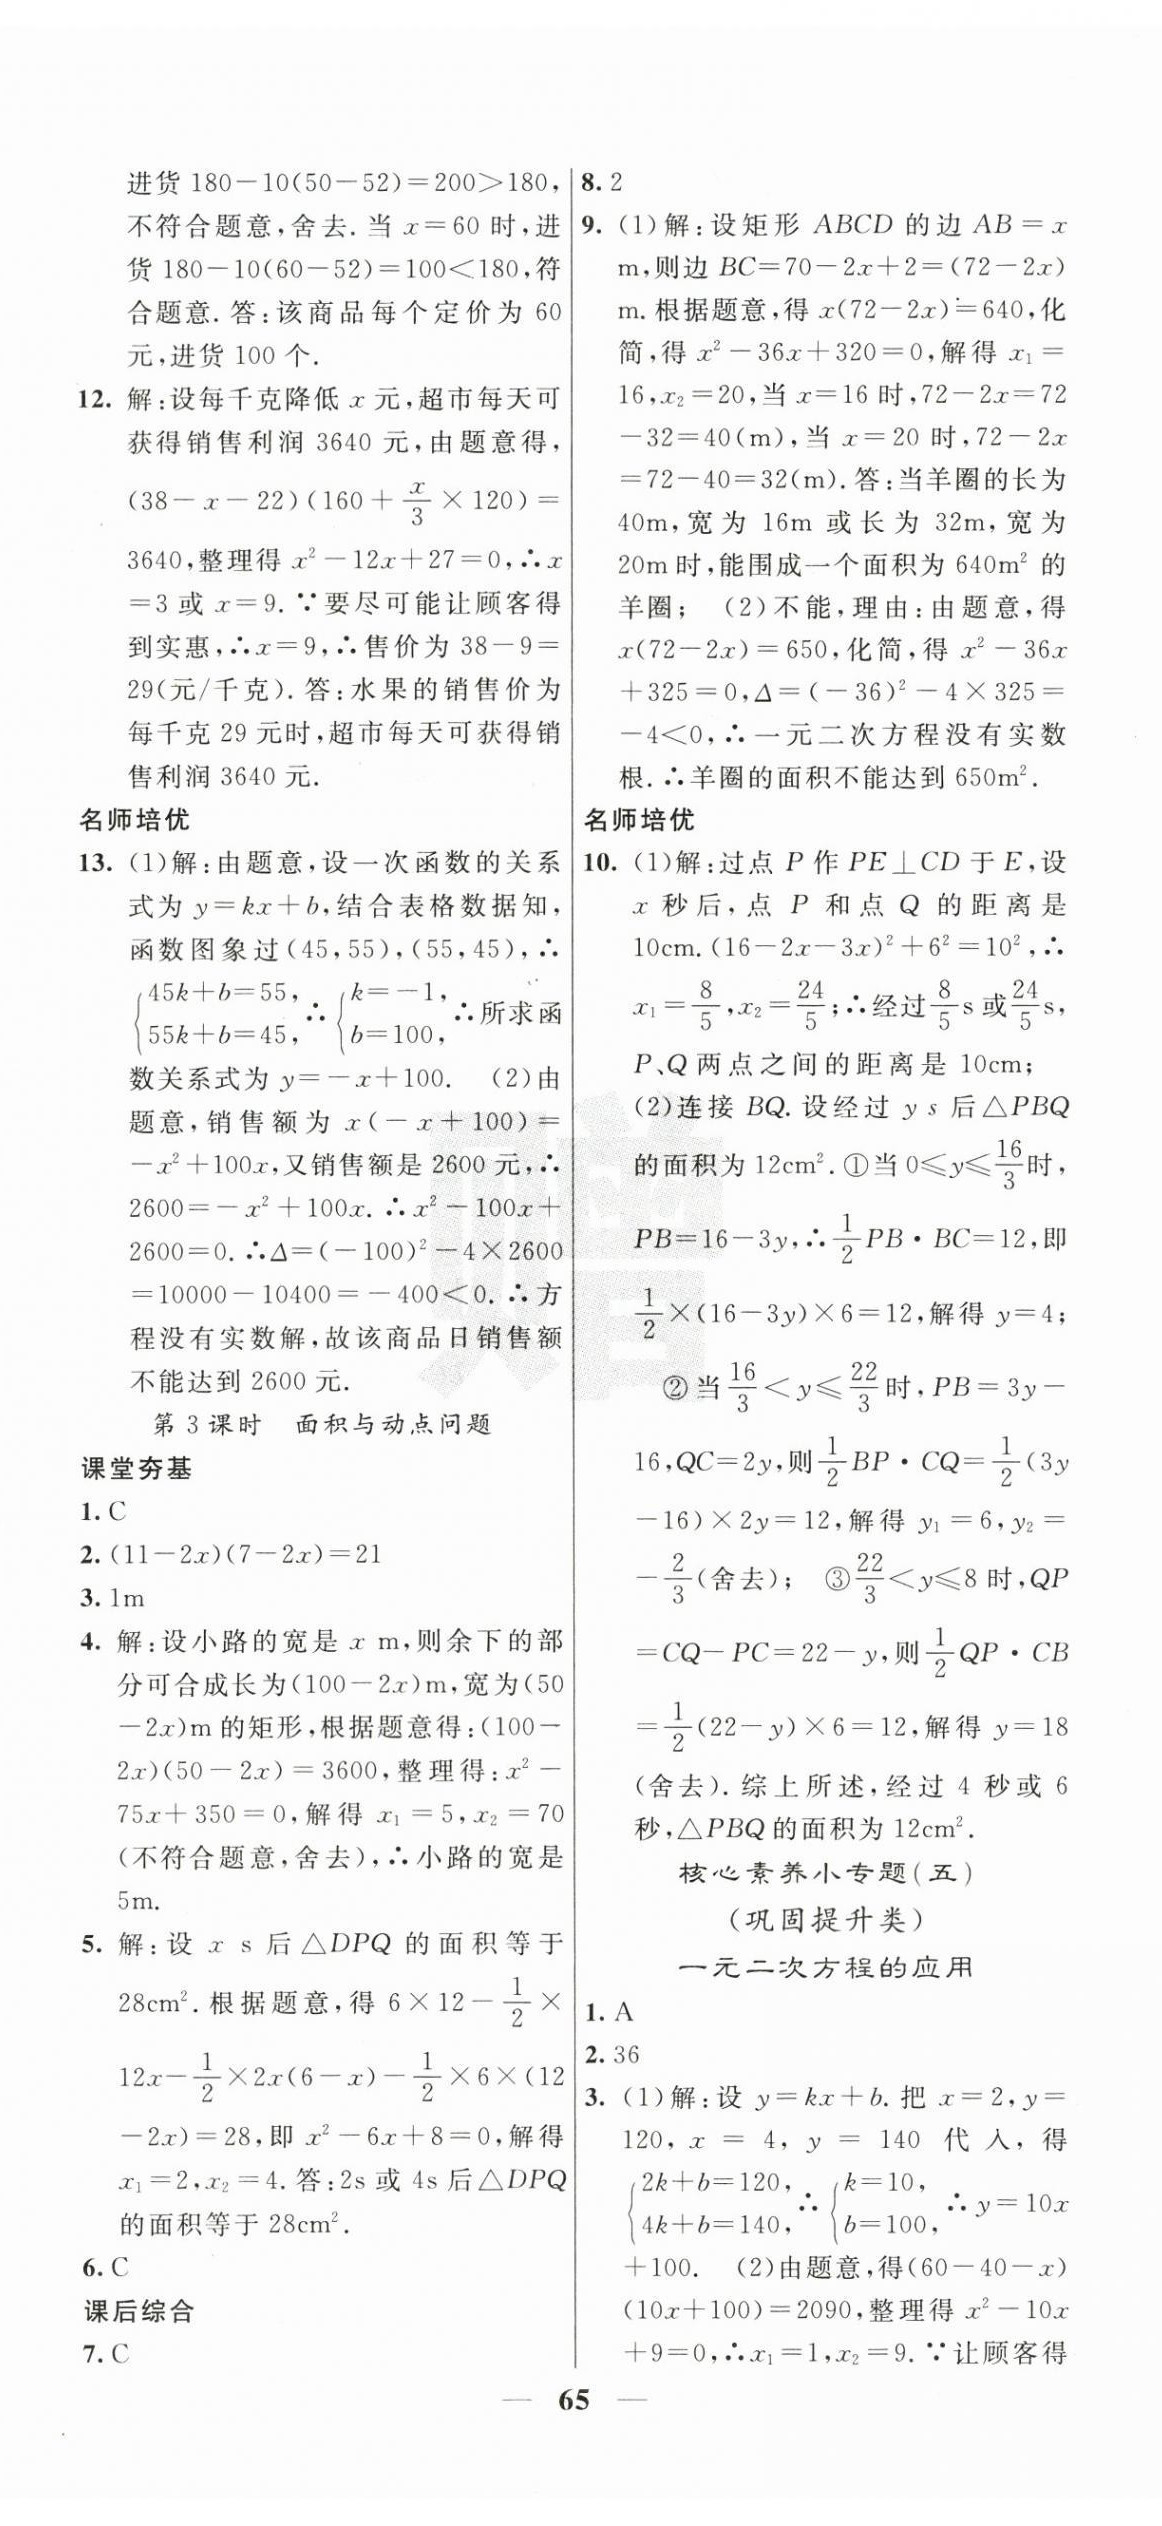 进货 180－10(50－52)＝200＞180,
不符合题意,舍去. 当 x＝60 时,进
货 180－10(60－52)＝100＜180,符
合题意. 答:该商品每个定价为 60
元,进货 100 个.
12. 解:设每千克降低 x 元,超市每天可
获得销售利润 3640 元,由题意得,
(38－x－22)(160＋x/3×120)＝
3640,整理得 x²－12x＋27＝0,∴x
＝3 或 x＝9. ∵要尽可能让顾客得
到实惠,∴x＝9,∴售价为 38－9＝
29(元/千克). 答:水果的销售价为
每千克 29 元时,超市每天可获得销
售利润 3640 元.
名师培优
13. (1)解:由题意,设一次函数的关系
式为 y＝kx＋b,结合表格数据知,
函数图象过(45,55),(55,45),∴
{45k＋b＝55, 55k＋b＝45, ∴ {k＝－1, b＝100, ∴所求函
数关系式为 y＝－x＋100. (2)由
题意,销售额为 x(－x＋100)＝
－x²＋100x,又销售额是 2600 元,∴
2600＝－x²＋100x. ∴x²－100x＋
2600＝0. ∴Δ＝(－100)²－4×2600
＝10000－10400＝－400＜0. ∴方
程没有实数解,故该商品日销售额
不能达到 2600 元.
第 3 课时 面积与动点问题
课堂夯基
1. C
2. (11－2x)(7－2x)＝21
3. 1m
4. 解:设小路的宽是 x m,则余下的部
分可合成长为(100－2x)m,宽为(50
－2x)m 的矩形,根据题意得:(100－
2x)(50－2x)＝3600,整理得:x²－
75x＋350＝0,解得 x₁＝5,x₂＝70
(不符合题意,舍去),∴小路的宽是
5m.
5. 解:设 x s 后△DPQ 的面积等于
28cm². 根据题意,得 6×12－1/2×
12x－1/2×2x(6－x)－1/2×6×(12
－2x)＝28,即 x²－6x＋8＝0,解得
x₁＝2,x₂＝4. 答:2s 或 4s 后△DPQ
的面积等于 28cm².
6. C
课后综合
7. C
8. 2
9. (1)解:设矩形 ABCD 的边 AB＝x
m,则边 BC＝70－2x＋2＝(72－2x)
m. 根据题意,得 x(72－2x)＝640,化
简,得 x²－36x＋320＝0,解得 x₁＝
16,x₂＝20,当 x＝16 时,72－2x＝72
－32＝40(m),当 x＝20 时,72－2x
＝72－40＝32(m). 答:当羊圈的长为
40m,宽为 16m 或长为 32m,宽为
20m 时,能围成一个面积为 640m² 的
羊圈; (2)不能,理由:由题意,得
x(72－2x)＝650,化简,得 x²－36x
＋325＝0,Δ＝(－36)²－4×325＝
－4＜0,∴一元二次方程没有实数
根. ∴羊圈的面积不能达到 650m².
名师培优
10. (1)解:过点 P 作 PE⊥CD 于 E,设
x 秒后,点 P 和点 Q 的距离是
10cm. (16－2x－3x)²＋6²＝10²,∴
x₁＝8/5,x₂＝24/5;∴经过8/5s 或24/5s,
P、Q 两点之间的距离是 10cm;
(2)连接 BQ. 设经过 y s 后△PBQ
的面积为 12cm². ①当 0≤y≤16/3时,
PB＝16－3y,∴1/2PB·BC＝12,即
1/2×(16－3y)×6＝12,解得 y＝4;
②当16/3＜y≤22/3时,PB＝3y－
16,QC＝2y,则1/2BP·CQ＝1/2(3y
－16)×2y＝12,解得 y₁＝6,y₂＝
－2/3(舍去); ③22/3＜y≤8 时,QP
＝CQ－PC＝22－y,则1/2QP·CB
＝1/2(22－y)×6＝12,解得 y＝18
(舍去). 综上所述,经过 4 秒或 6
秒,△PBQ 的面积为 12cm².
核心素养小专题(五)
(巩固提升类)
一元二次方程的应用
1. A
2. 36
3. (1)解:设 y＝kx＋b. 把 x＝2,y＝
120, x ＝ 4, y ＝ 140 代入,得
{2k＋b＝120, 4k＋b＝140, ∴ {k＝10, b＝100, ∴y＝10x
＋100. (2)由题意,得(60－40－x)
(10x＋100)＝2090,整理得 x²－10x
＋9＝0,∴x₁＝1,x₂＝9. ∵让顾客得
— 65 —